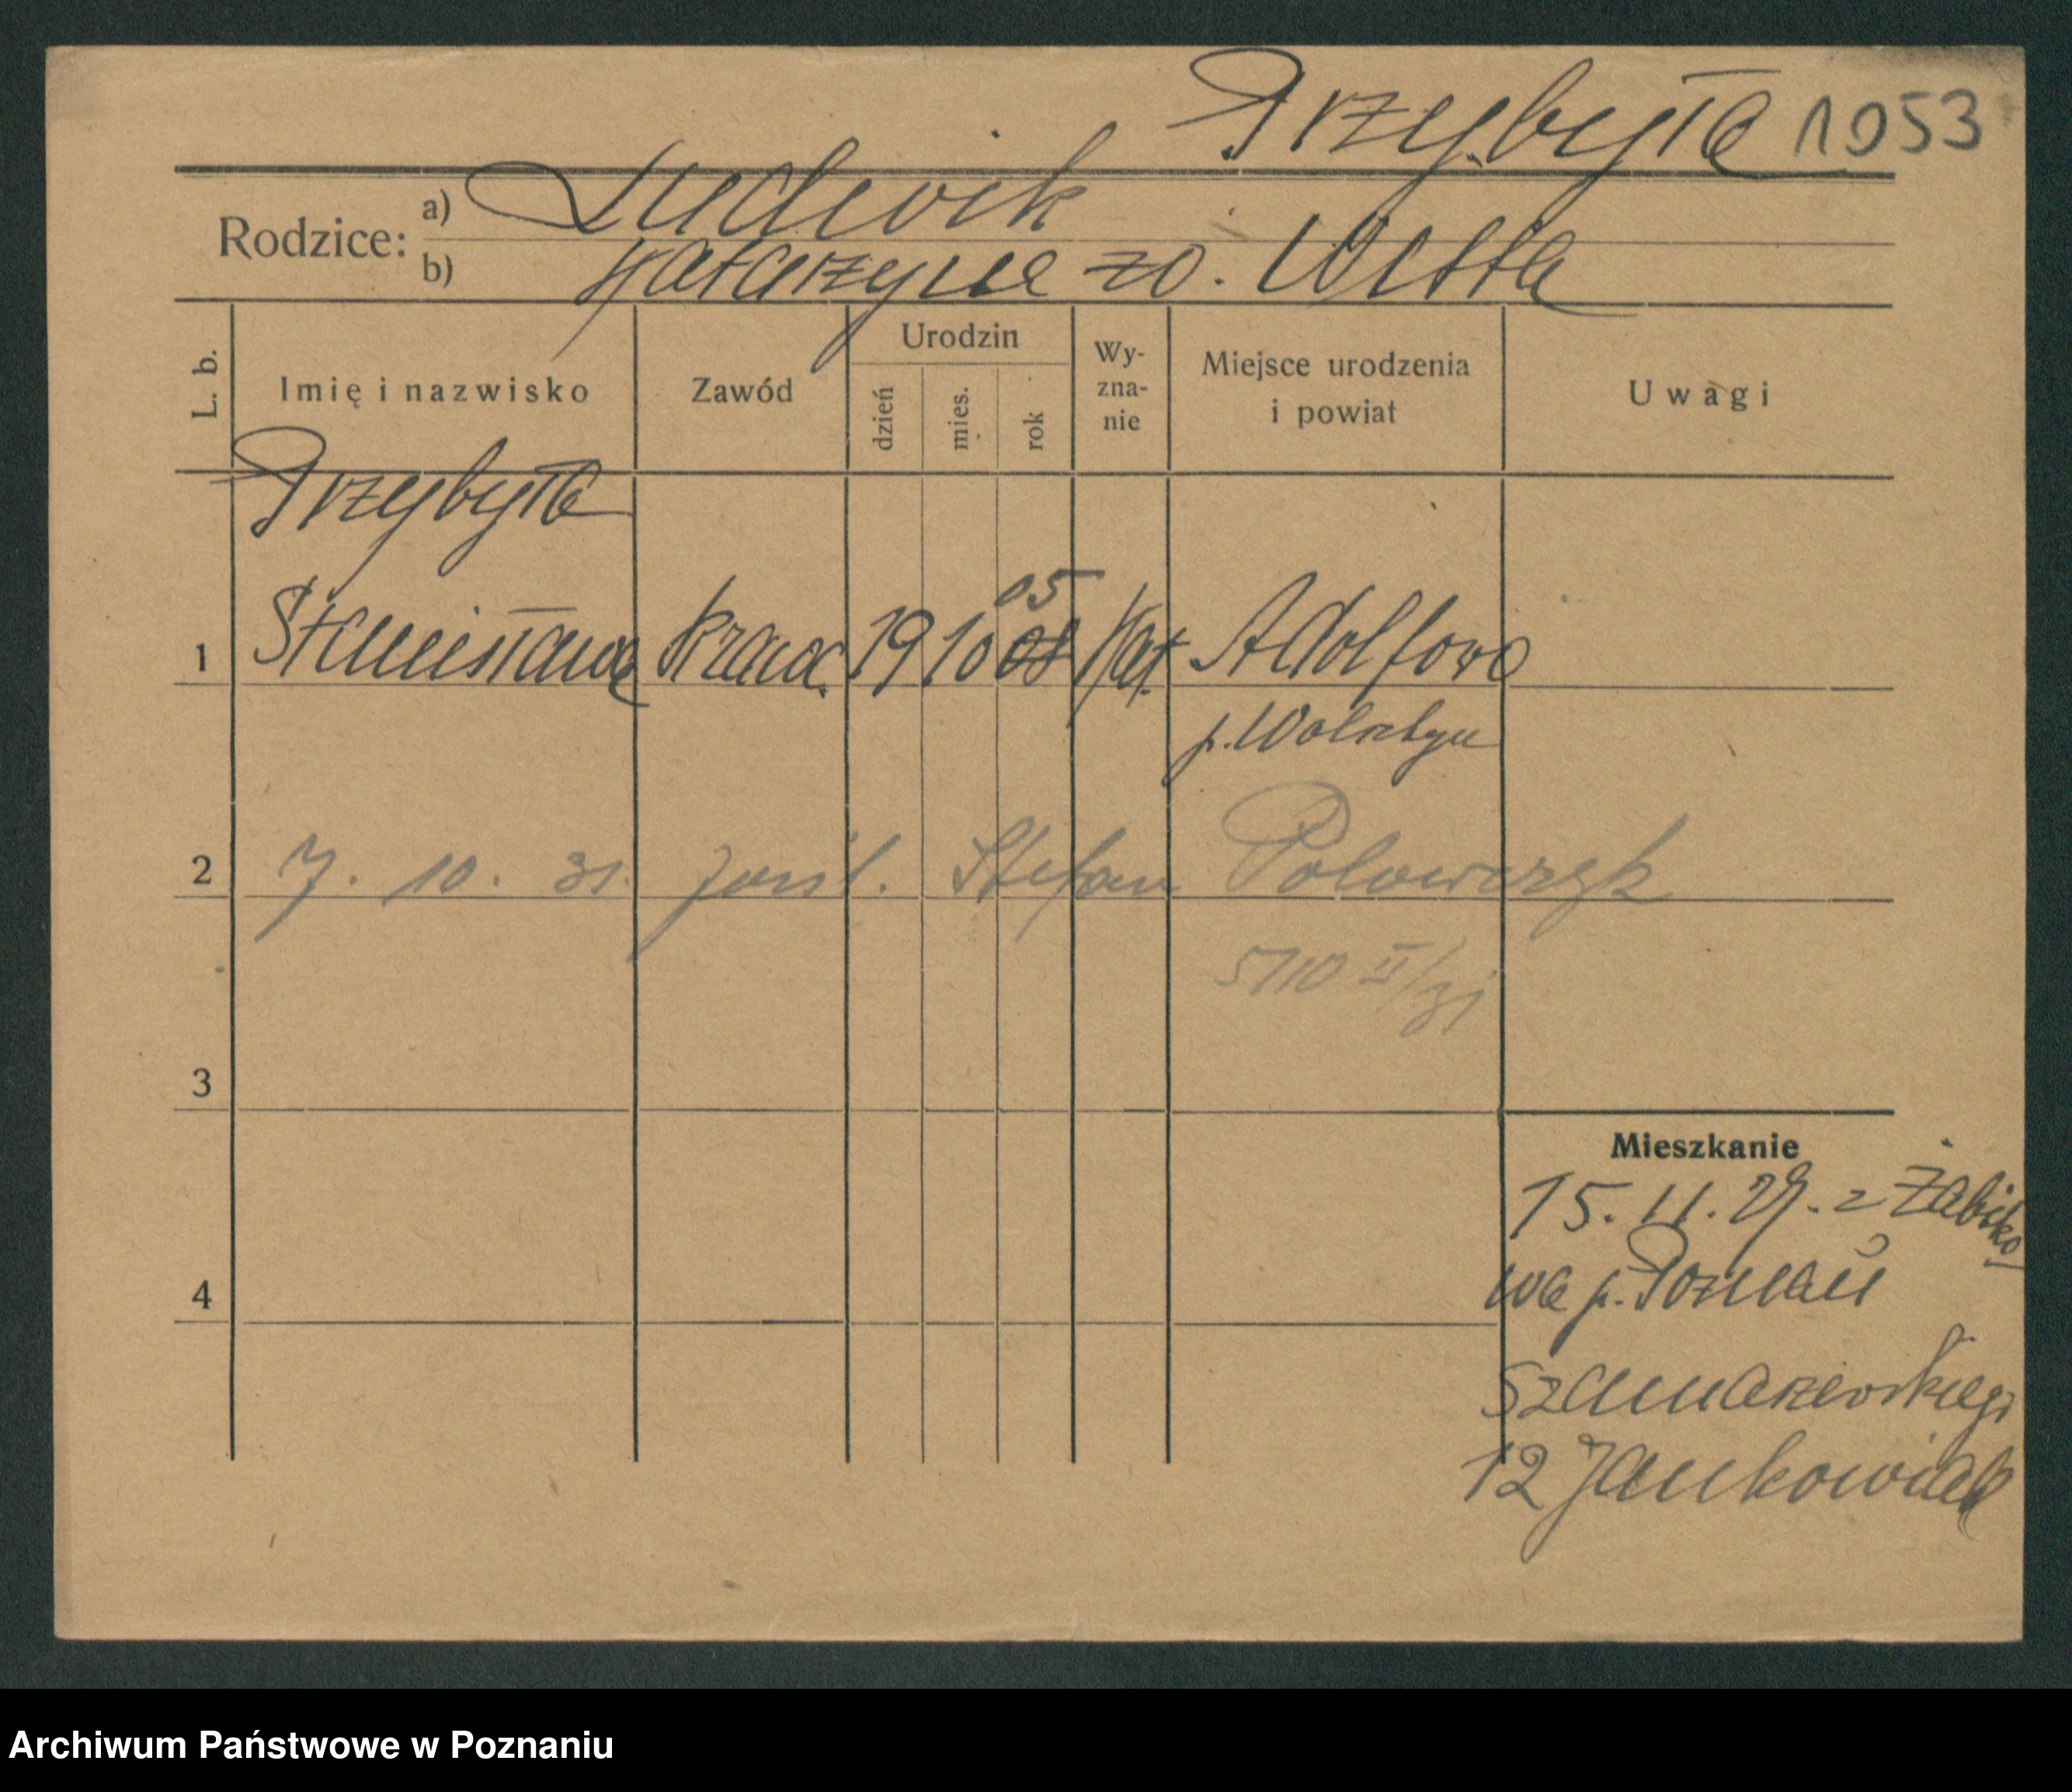 Przybyła 1053
Rodzice:
a) Ludwik
b) Katarzyna zd. Wista
L. b.
Imię i nazwisko
Zawód
Urodzin
dzień
mies.
rok
Wy-
zna-
nie
Miejsce urodzenia
i powiat
Uwagi
Przybyła
05
1 Stanisława krawc. 19 10 08 Kat. Adolfowo
p. Wolsztyn
2 7. 10. 31. Stefan Polowczyk
5710 II/31
3
4
Mieszkanie
15. 11. 29. z Żabiko-
wa p. Poznań
Szamarzewskiego
12 Jankowiak
Archiwum Państwowe w Poznaniu